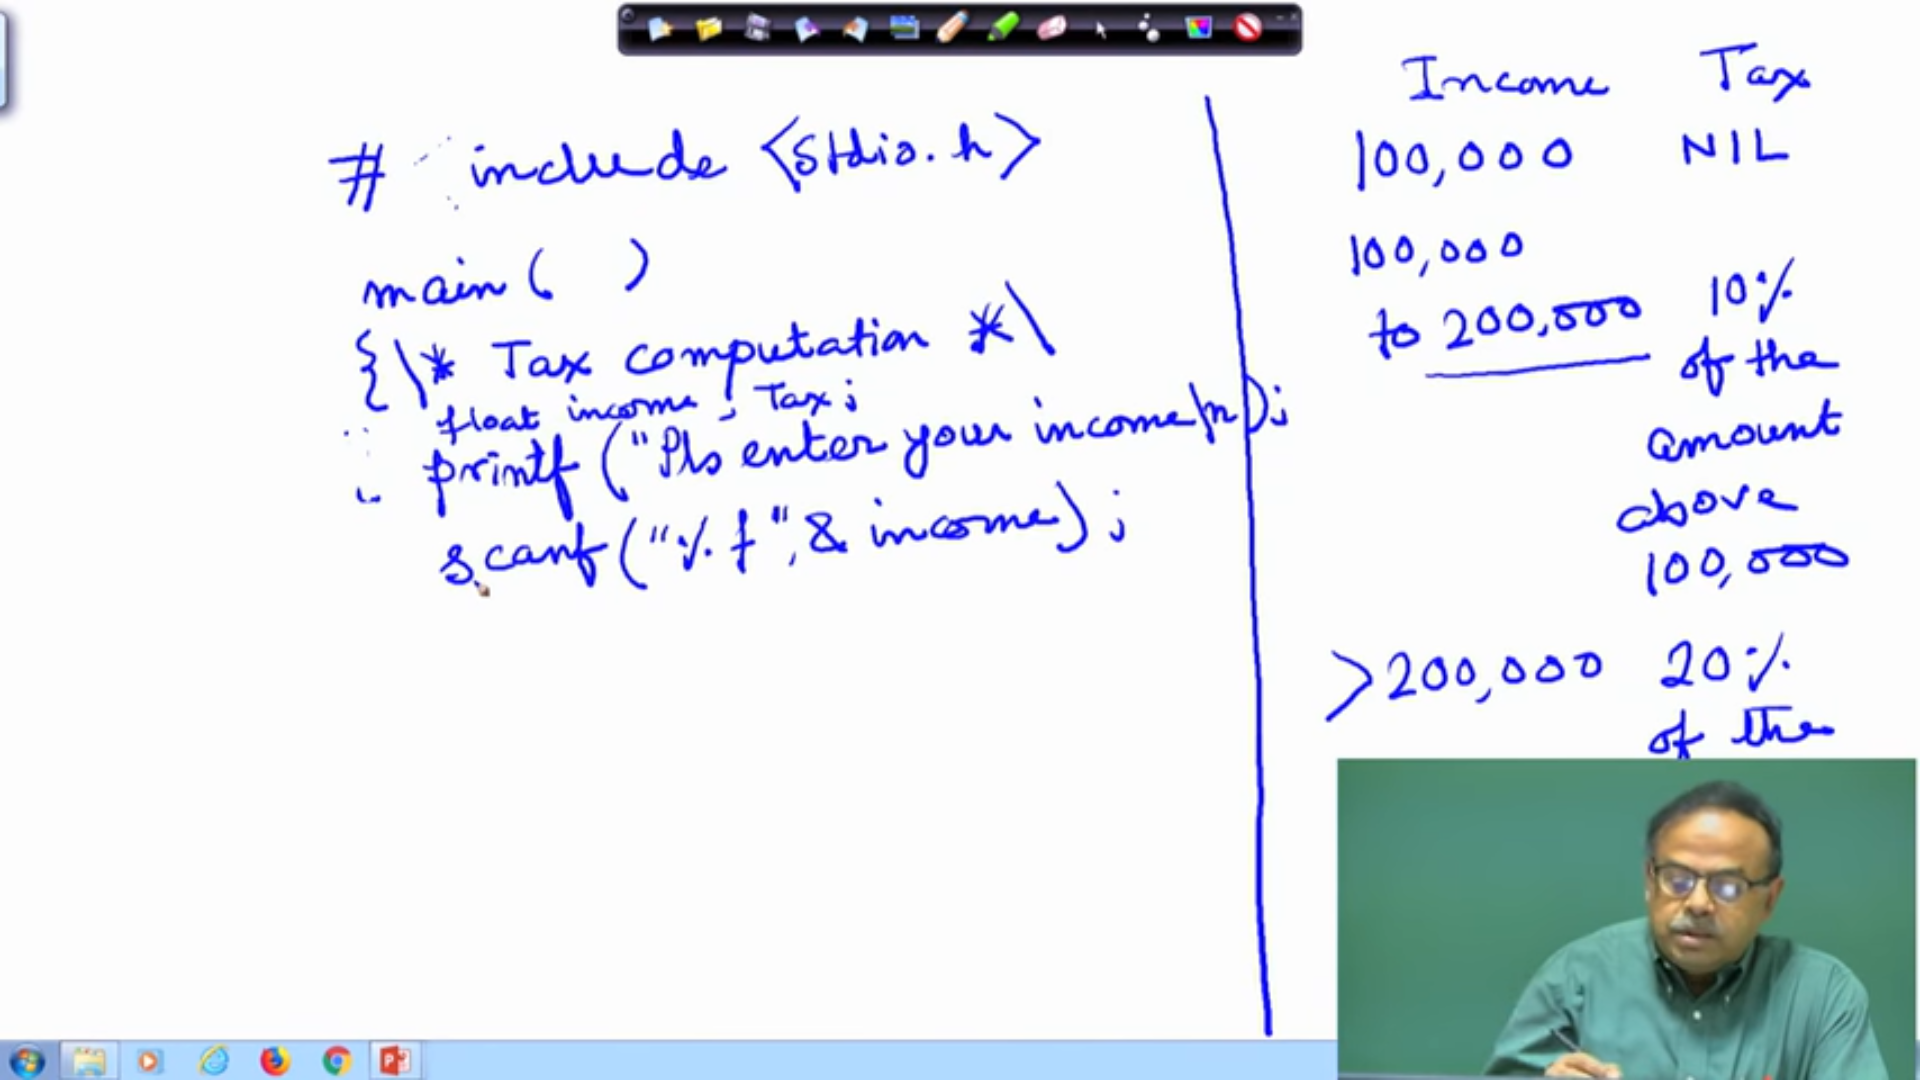 # include <stdio.h>
main( )
{\* Tax computation *\
float income, Tax;
printf ("Pls enter your income\n);
scanf ("%f", & income);
Income Tax
100,000 NIL
100,000
to 200,000 10%
of the
amount
above
100,000
>200,000 20%
of the